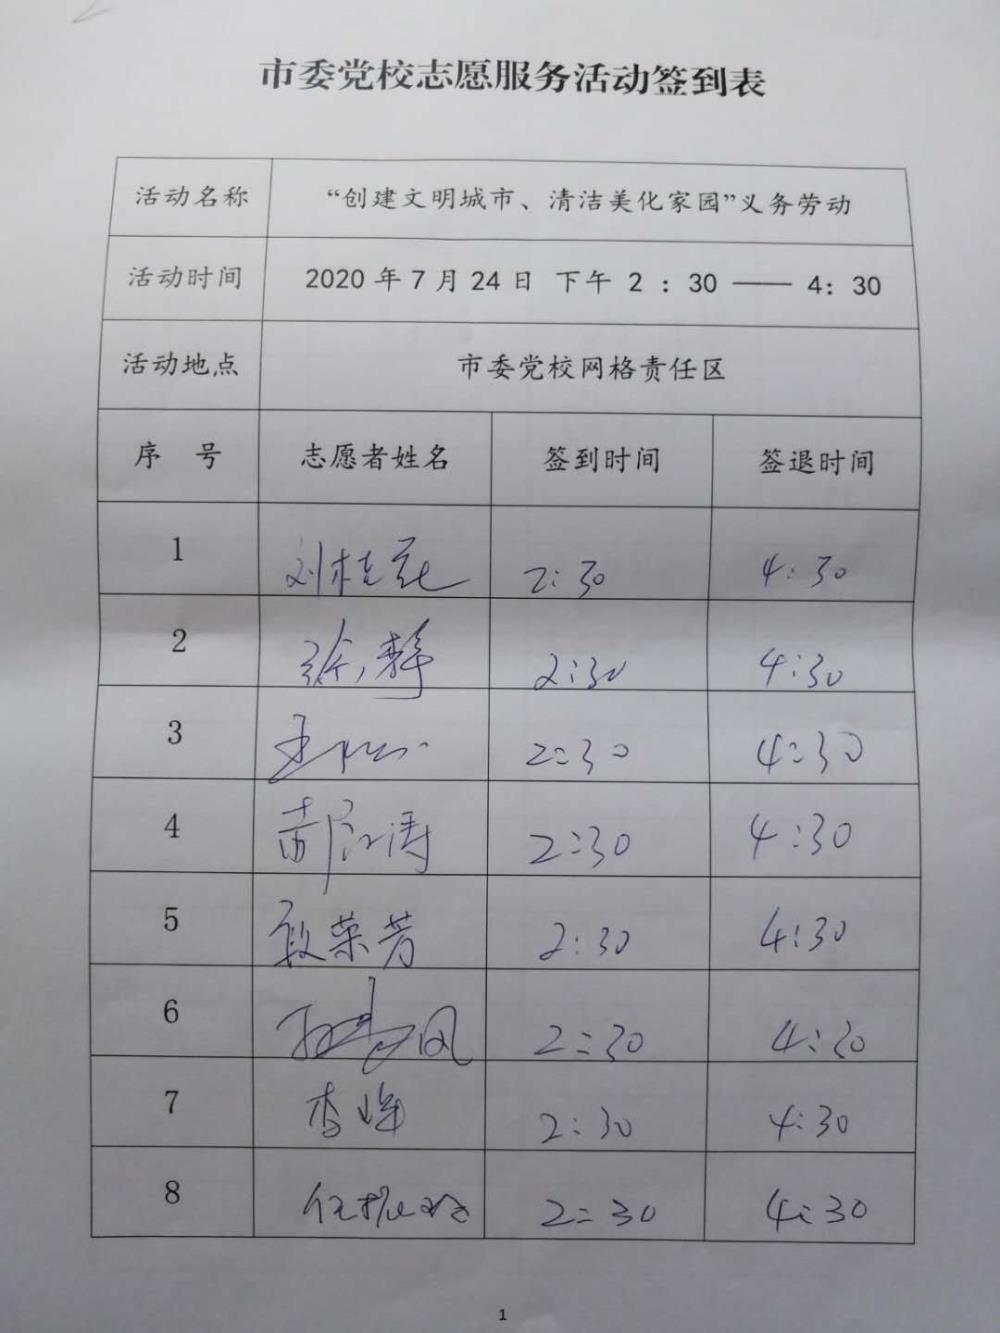 市委党校志愿服务活动签到表
活动名称 “创建文明城市、清洁美化家园”义务劳动
活动时间 2020 年 7 月 24 日 下午 2 : 30 —— 4: 30
活动地点 市委党校网格责任区
序 号 志愿者姓名 签到时间 签退时间
1 刘桂花 2:30 4:30
2 张静 2:30 4:30
3 2:30 4:30
4 郝江涛 2:30 4:30
5 段荣芳 2:30 4:30
6 2:30 4:30
7 李峰 2:30 4:30
8 2:30 4:30
1